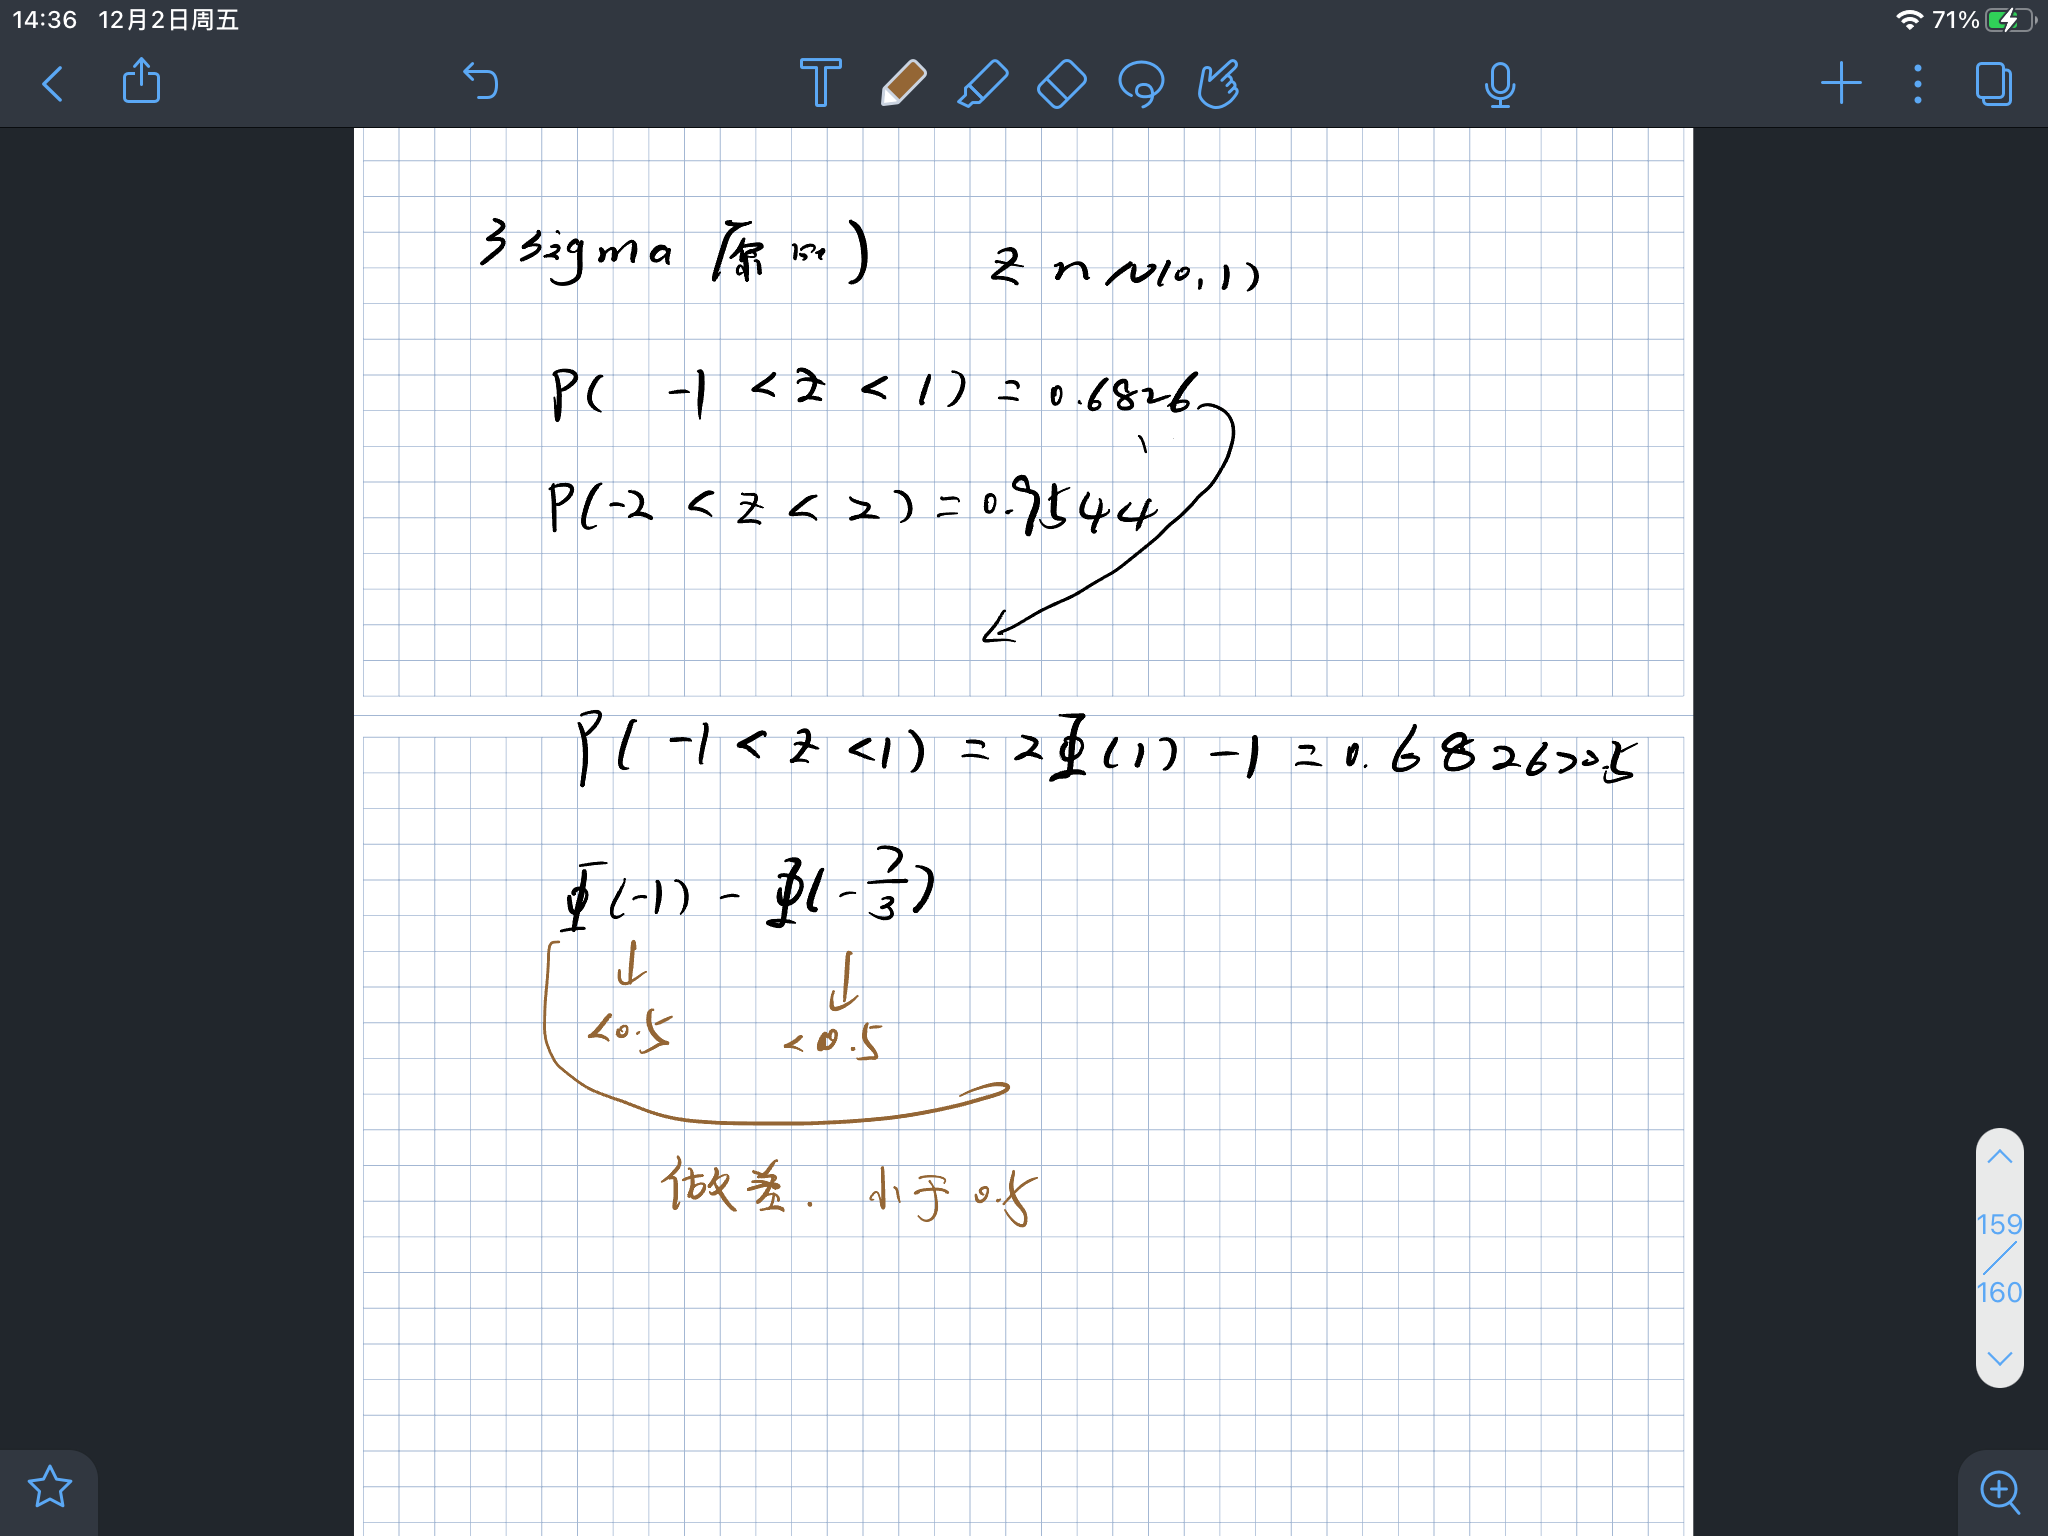 14:36 12月2日周五 71%
3sigma (原则) Z ~ N(0,1)
P( -1 < z < 1) = 0.6826
P(-2 < z < 2) = 0.9544
P( -1 < z <1) = 2Φ(1) -1 = 0.6826>0.5
Φ(-1) - Φ(-7/3)
<0.5 <0.5
做差. 小于0.5
159
160